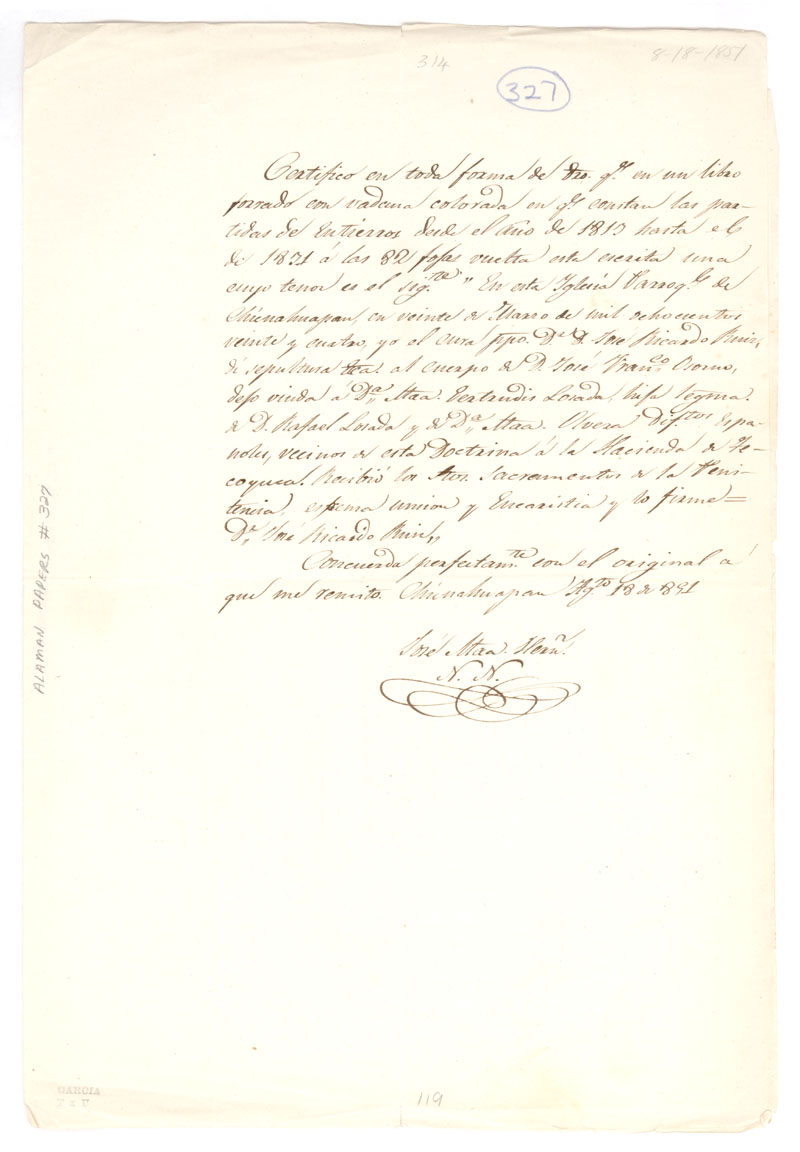 314
8-18-1851
327
Certifico en toda forma de dro. qe. en un libro
forrado con vadana colorada en qe. constan las par-
tidas de Entierros desde el año de 1813 hasta el
de 1831 á las 82 fojas vuelta esta escrita una
cuyo tenor es el sigte. " En esta Iglecia Parroql. de
Chicnahuapan, en veinte de Marzo de mil ochocientos
veinte y cuatro, yo el cura ppo. Dr. D. José Ricardo Ruiz,
di sepultura al cuerpo de D. José Franco. Osorno,
dejo viuda á Da. Maa. Gertrudis Losada, hija legma.
de D. Rafael Losada y de Da. Maa. Olvera difuntos, Espa-
ñoles, vecinos de esta Doctrina á la Hacienda de Te-
coyuca. Recibió los Stos. Sacramentos de la Peni-
tencia, estrema uncion y Eucaristia y lo firme=
Dr. José Ricardo Ruiz,,
Concuerda perfectamte. con el original a
que me remito. Chicnahuapan Agto. 18 de 851
José Maa. Hern.
N. N.
ALAMAN PAPERS # 327
GARCIA
119